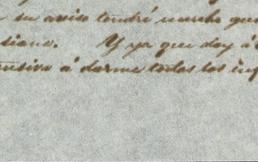 su aviso tendré mucho que
diano. Y ya que doy á
á darme todos los inf